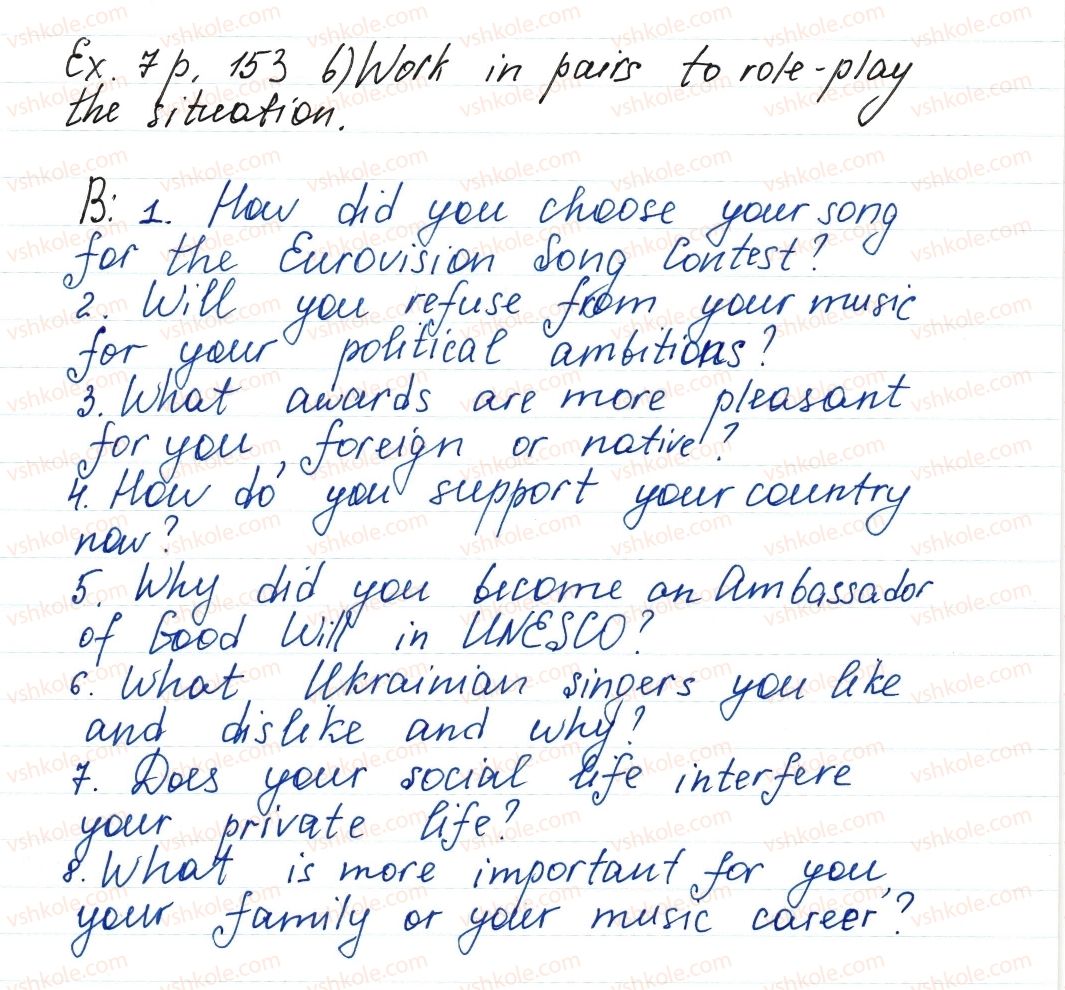 Ex. 7 p. 153 b) Work in pairs to role-play
the situation.
B: 1. How did you choose your song
for the Eurovision Song Contest?
2. Will you refuse from your music
for your political ambitions?
3. What awards are more pleasant
for you, foreign or native?
4. How do you support your country
now?
5. Why did you become an Ambassador
of Good Will in UNESCO?
6. What Ukrainian singers you like
and dislike and why?
7. Does your social life interfere
your private life?
8. What is more important for you,
your family or your music career?